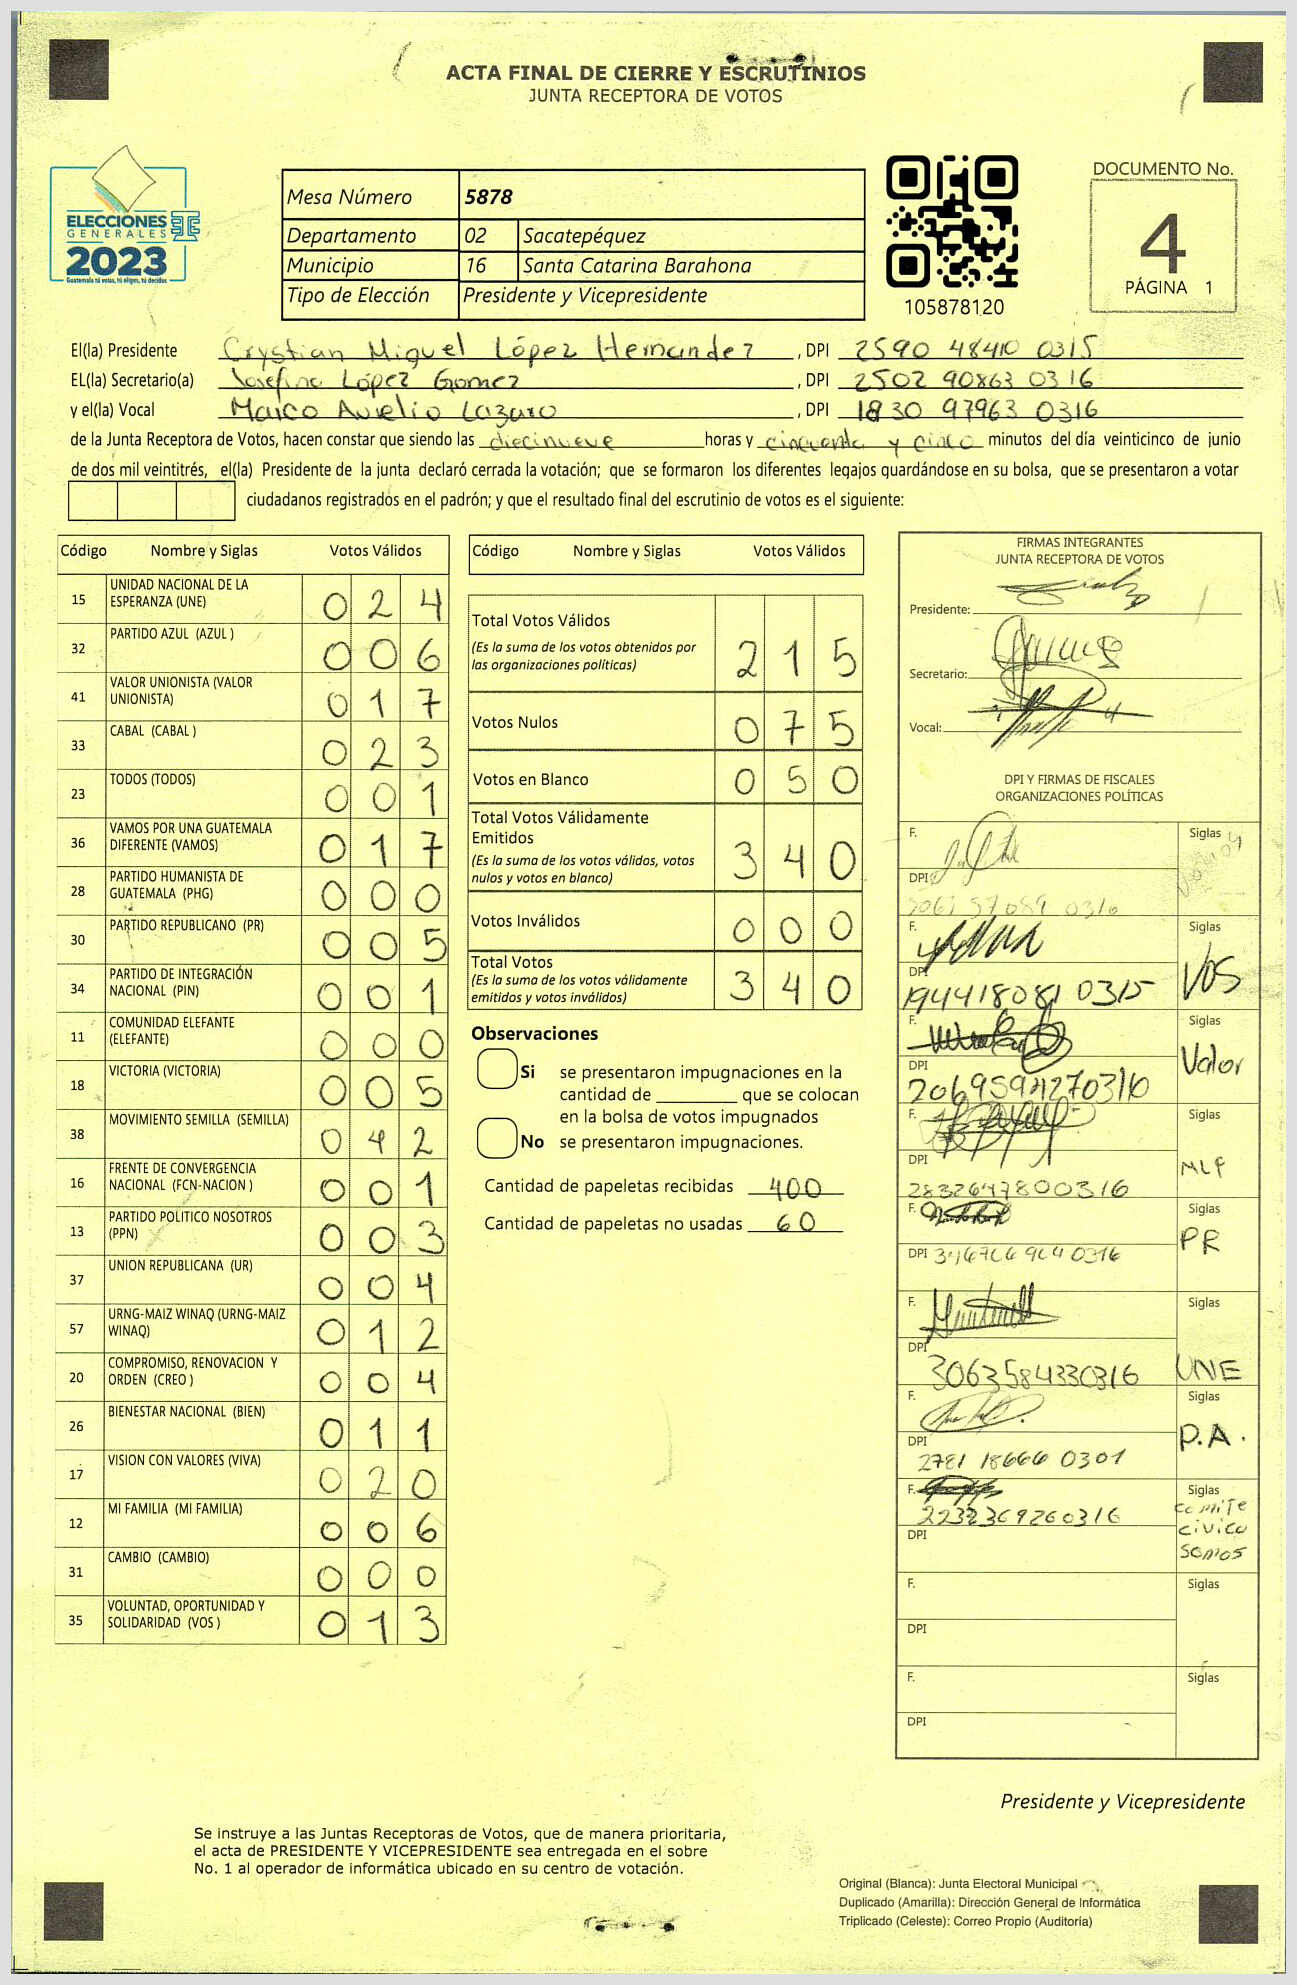 ACTA FINAL DE CIERRE Y ESCRUTINIOS
JUNTA RECEPTORA DE VOTOS
ELECCIONES
GENERALES
2023
Guatemala tú votas, tú eliges, tú decides
Mesa Número 5878
Departamento 02 Sacatepéquez
Municipio 16 Santa Catarina Barahona
Tipo de Elección Presidente y Vicepresidente
105878120
DOCUMENTO No.
4
PÁGINA 1
El(la) Presidente Crystian Miguel López Hernandez , DPI 2590 48410 0315
EL(la) Secretario(a) Josefina López Gomez , DPI 2502 90863 0316
y el(la) Vocal Marco Aurelio Lazaro , DPI 1830 97963 0316
de la Junta Receptora de Votos, hacen constar que siendo las diecinueve horas y cincuenta y cinco minutos del día veinticinco de junio
de dos mil veintitrés, el(la) Presidente de la junta declaró cerrada la votación; que se formaron los diferentes legajos guardándose en su bolsa, que se presentaron a votar
ciudadanos registrados en el padrón; y que el resultado final del escrutinio de votos es el siguiente:
Código Nombre y Siglas Votos Válidos
15 UNIDAD NACIONAL DE LA ESPERANZA (UNE) 024
32 PARTIDO AZUL (AZUL ) 006
41 VALOR UNIONISTA (VALOR UNIONISTA) 017
33 CABAL (CABAL ) 023
23 TODOS (TODOS) 001
36 VAMOS POR UNA GUATEMALA DIFERENTE (VAMOS) 017
28 PARTIDO HUMANISTA DE GUATEMALA (PHG) 000
30 PARTIDO REPUBLICANO (PR) 005
34 PARTIDO DE INTEGRACIÓN NACIONAL (PIN) 001
11 COMUNIDAD ELEFANTE (ELEFANTE) 000
18 VICTORIA (VICTORIA) 005
38 MOVIMIENTO SEMILLA (SEMILLA) 042
16 FRENTE DE CONVERGENCIA NACIONAL (FCN-NACION ) 001
13 PARTIDO POLITICO NOSOTROS (PPN) 003
37 UNION REPUBLICANA (UR) 004
57 URNG-MAIZ WINAQ (URNG-MAIZ WINAQ) 012
20 COMPROMISO, RENOVACION Y ORDEN (CREO ) 004
26 BIENESTAR NACIONAL (BIEN) 011
17 VISION CON VALORES (VIVA) 020
12 MI FAMILIA (MI FAMILIA) 006
31 CAMBIO (CAMBIO) 000
35 VOLUNTAD, OPORTUNIDAD Y SOLIDARIDAD (VOS ) 013
Código Nombre y Siglas Votos Válidos
Total Votos Válidos 215
(Es la suma de los votos obtenidos por
las organizaciones políticas)
Votos Nulos 075
Votos en Blanco 050
Total Votos Válidamente
Emitidos 340
(Es la suma de los votos válidos, votos
nulos y votos en blanco)
Votos Inválidos 000
Total Votos 340
(Es la suma de los votos válidamente
emitidos y votos inválidos)
Observaciones
Si se presentaron impugnaciones en la
cantidad de ________ que se colocan
en la bolsa de votos impugnados
No se presentaron impugnaciones.
Cantidad de papeletas recibidas 400
Cantidad de papeletas no usadas 60
FIRMAS INTEGRANTES
JUNTA RECEPTORA DE VOTOS
Presidente:
Secretario:
Vocal:
DPI Y FIRMAS DE FISCALES
ORGANIZACIONES POLÍTICAS
F. Siglas
DPI
F. Siglas VOS
DPI 194418081 0315
F. Siglas Valor
DPI
F. Siglas MLF
DPI 2832647800316
F. Siglas PR
DPI
F. Siglas UNE
DPI 3063584330316
F. Siglas P.A.
DPI 2781 18666 0301
F. Siglas comite civico somos
DPI 2232369260316
F. Siglas
DPI
F. Siglas
DPI
Presidente y Vicepresidente
Se instruye a las Juntas Receptoras de Votos, que de manera prioritaria,
el acta de PRESIDENTE Y VICEPRESIDENTE sea entregada en el sobre
No. 1 al operador de informática ubicado en su centro de votación.
Original (Blanca): Junta Electoral Municipal
Duplicado (Amarilla): Dirección General de Informática
Triplicado (Celeste): Correo Propio (Auditoria)